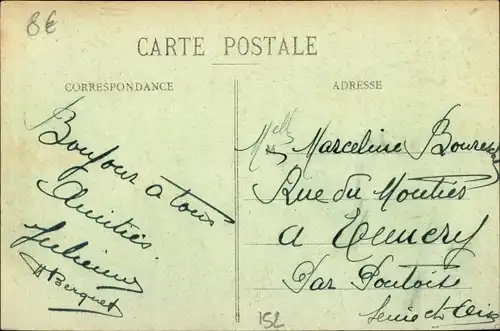 8€
CARTE POSTALE
CORRESPONDANCE
ADRESSE
Bonjour a tous
Amitiés
Julienne
Melle Marceline
Rue du Moutier
a Ennery
Par Pontoise
Seine et Oise
152